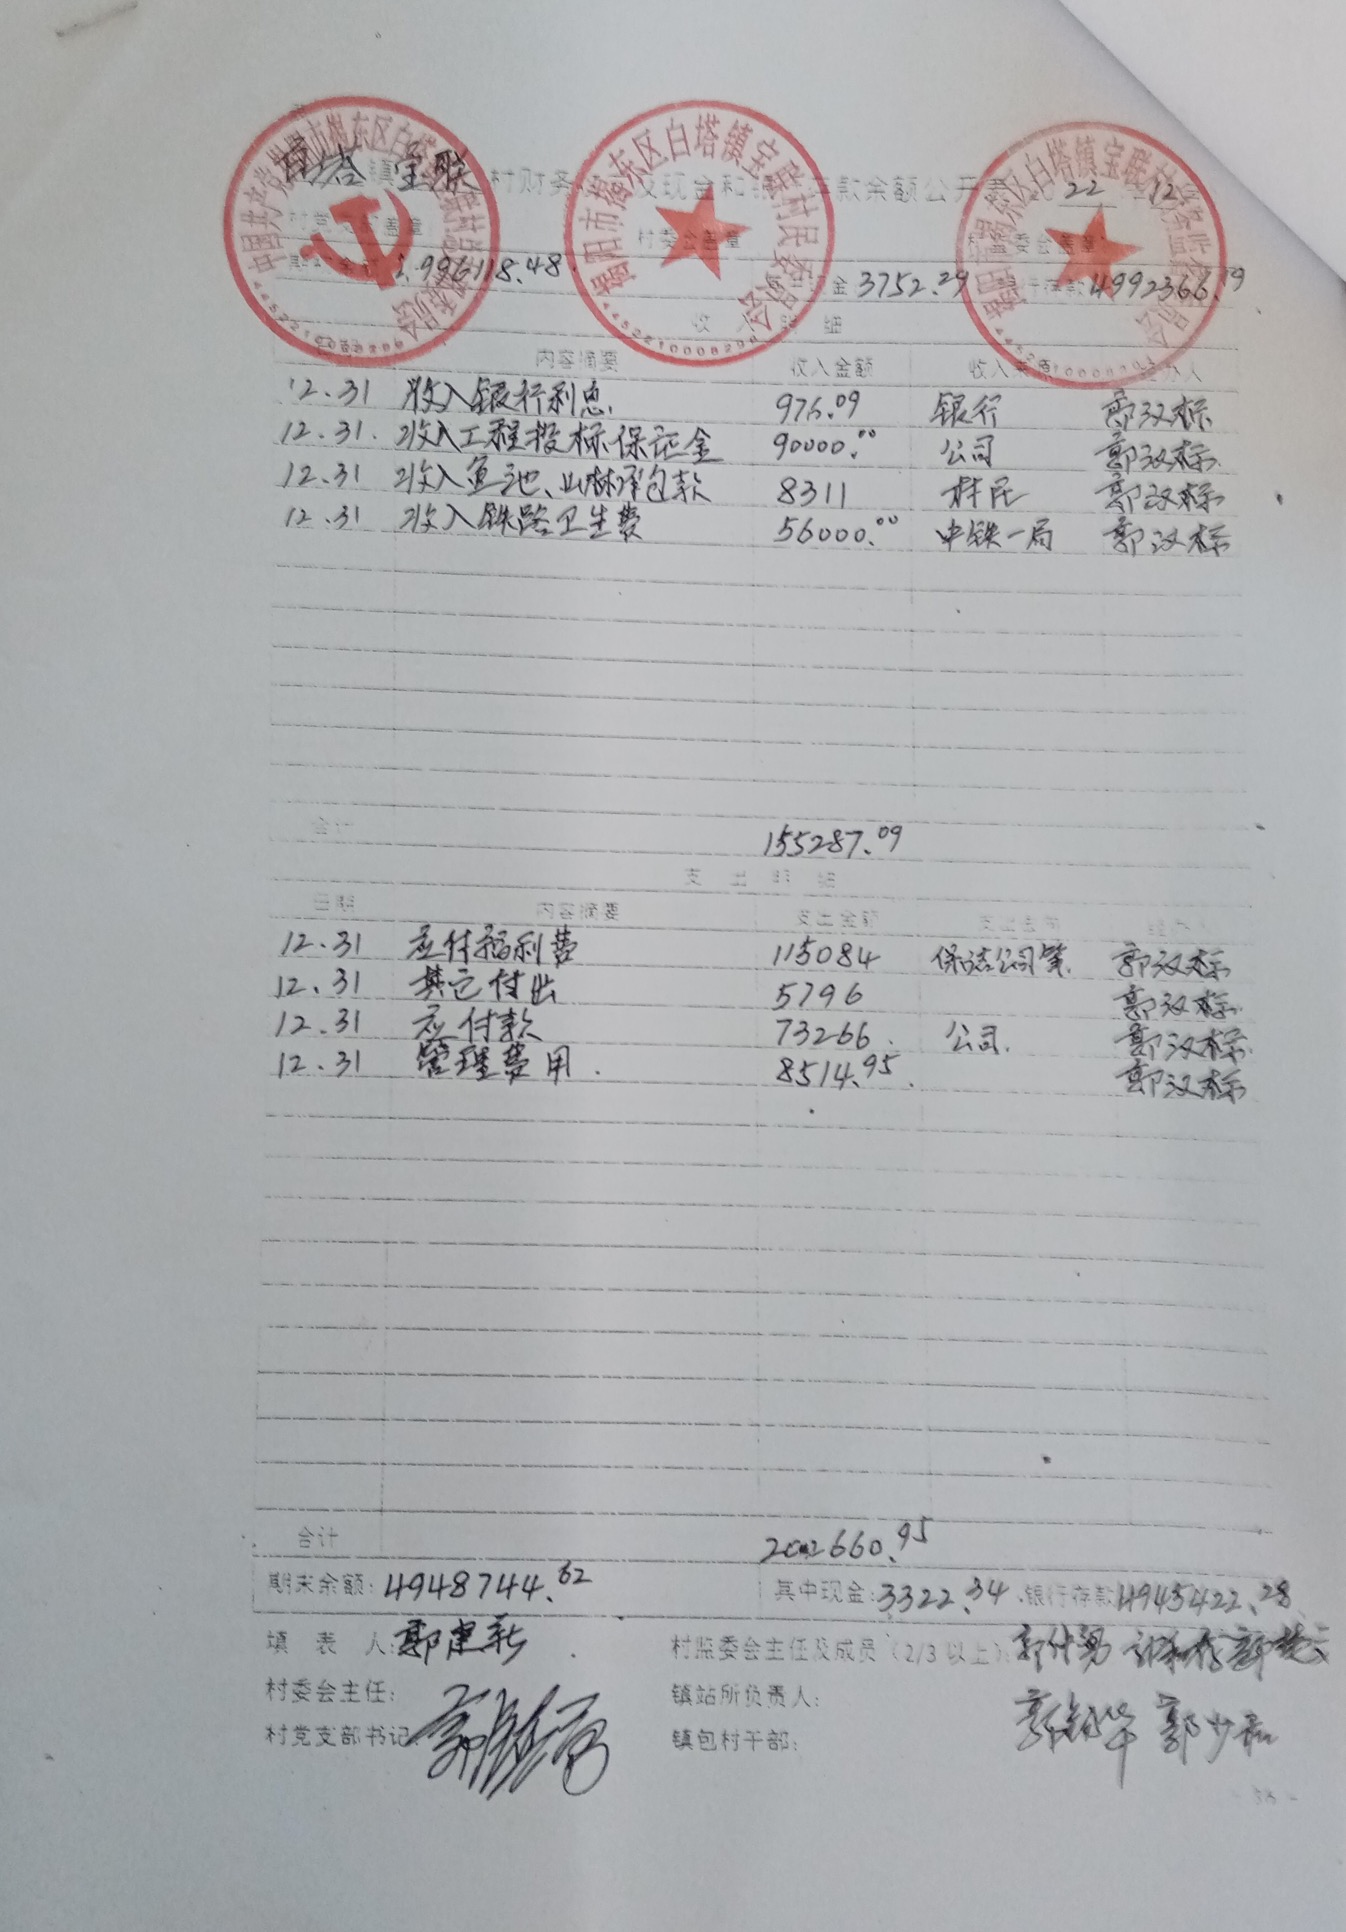 白塔镇宝联村财务 现金和 存款余额公开表 22 12
村党支 盖章
村委会盖章
村监委会盖章
中国共产党揭阳市揭东区白塔镇宝联村
揭阳市揭东区白塔镇宝联村民委员会
4452210008298
揭阳市揭东区白塔镇宝联村务监督委员会
4.996118.48. 金3752.29 银行存款4992366.19
收入明细
内容摘要 收入金额 收入来源 经办人
12.31 收入银行利息 976.09 银行 郭汉标
12.31. 收入工程投标保证金 90000.00 公司 郭汉标
12.31 收入鱼池、山林承包款 8311 村民 郭汉标
12.31 收入铁路卫生费 56000.00 中铁一局 郭汉标
合计 155287.09
支出明细
日期 内容摘要 支出金额 支出去向
12.31 应付福利费 115084 保洁公司等 郭汉标
12.31 其它付出 5796 郭汉标
12.31 应付款 73266. 公司. 郭汉标
12.31 管理费用. 8514.95. 郭汉标
合计 202660.95
期末余额:4948744.62 其中现金:3322.34.银行存款4945422.28
填表人:郭建新 村监委会主任及成员(2/3以上):
村委会主任: 镇站所负责人:
村党支部书记: 镇包村干部: